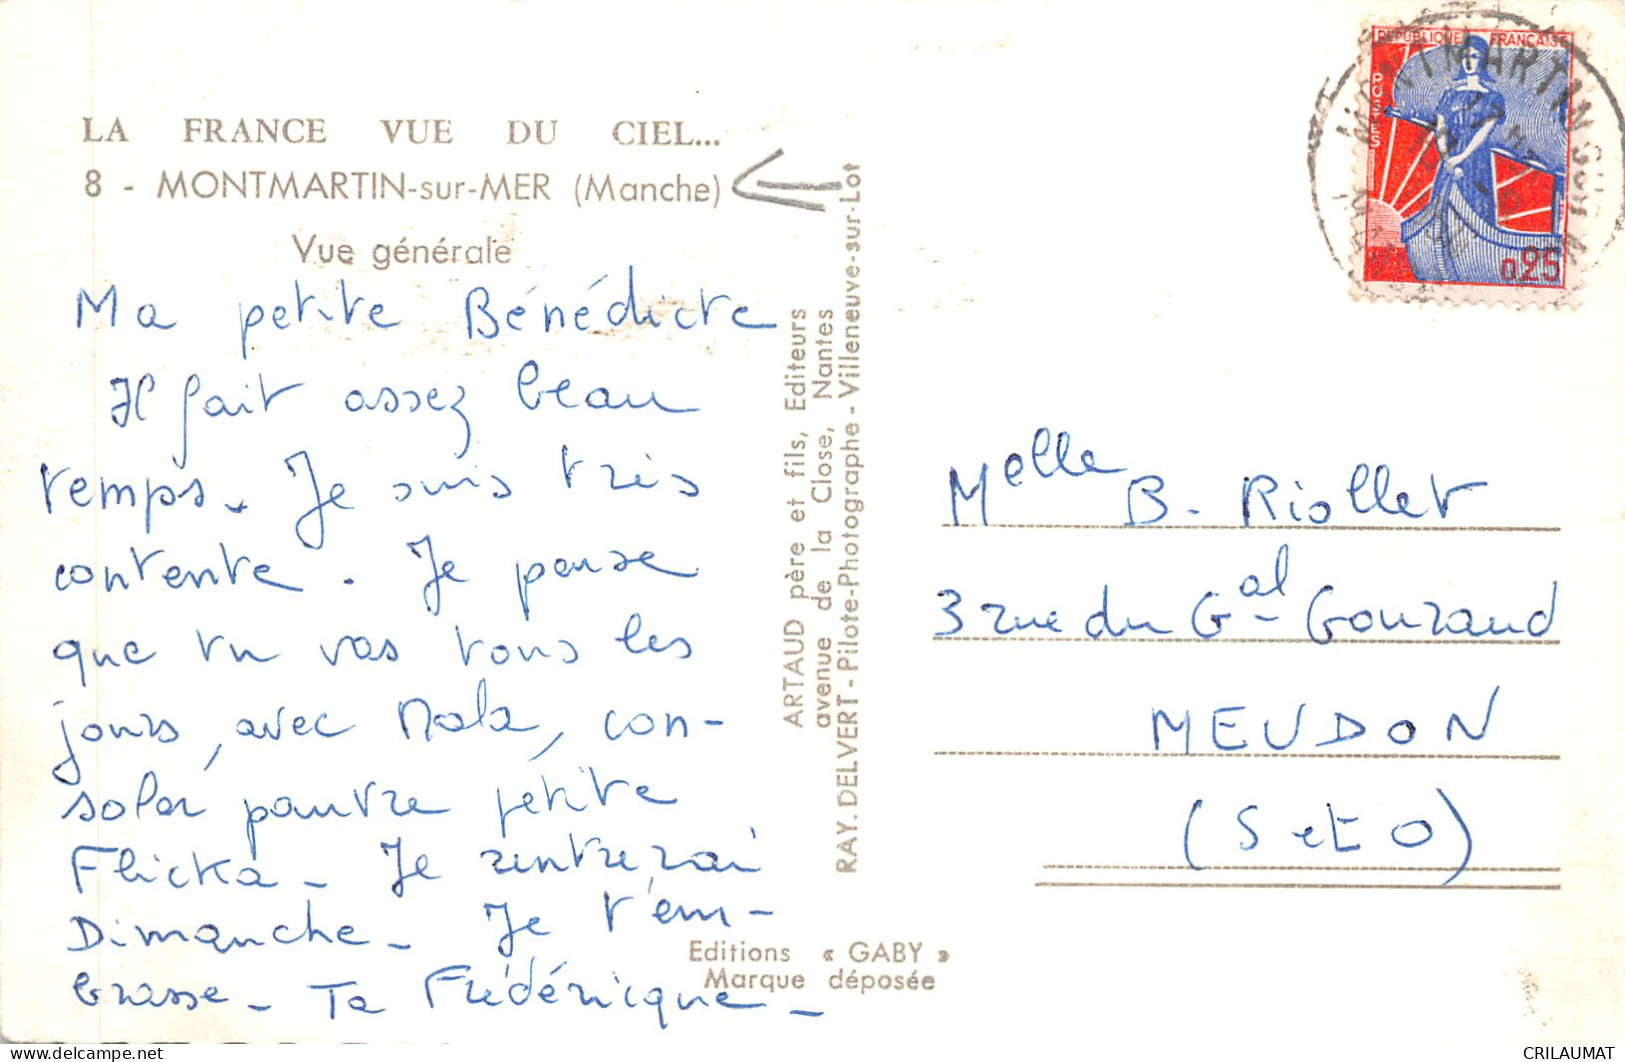 LA FRANCE VUE DU CIEL...
8 - MONTMARTIN-sur-MER (Manche)
Vue générale
Ma petite Bénédicte
Il fait assez beau
temps. Je suis très
contente. Je pense
que tu vas tous les
jours, avec Mala, con-
soler pauvre petite
Flicka - Je rentrerai
Dimanche - Je t'em-
brasse - Ta Frédérique -
ARTAUD père et fils, Editeurs
avenue de la Close, Nantes
RAY. DELVERT - Pilote-Photographe - Villeneuve-sur-Lot
Editions « GABY »
Marque déposée
REPUBLIQUE FRANÇAISE
POSTES
0,25
MONTMARTIN SUR MER
Melle B. Riollet
3 rue du Gal Gouraud
MEUDON
(S et O)
CRILAUMAT